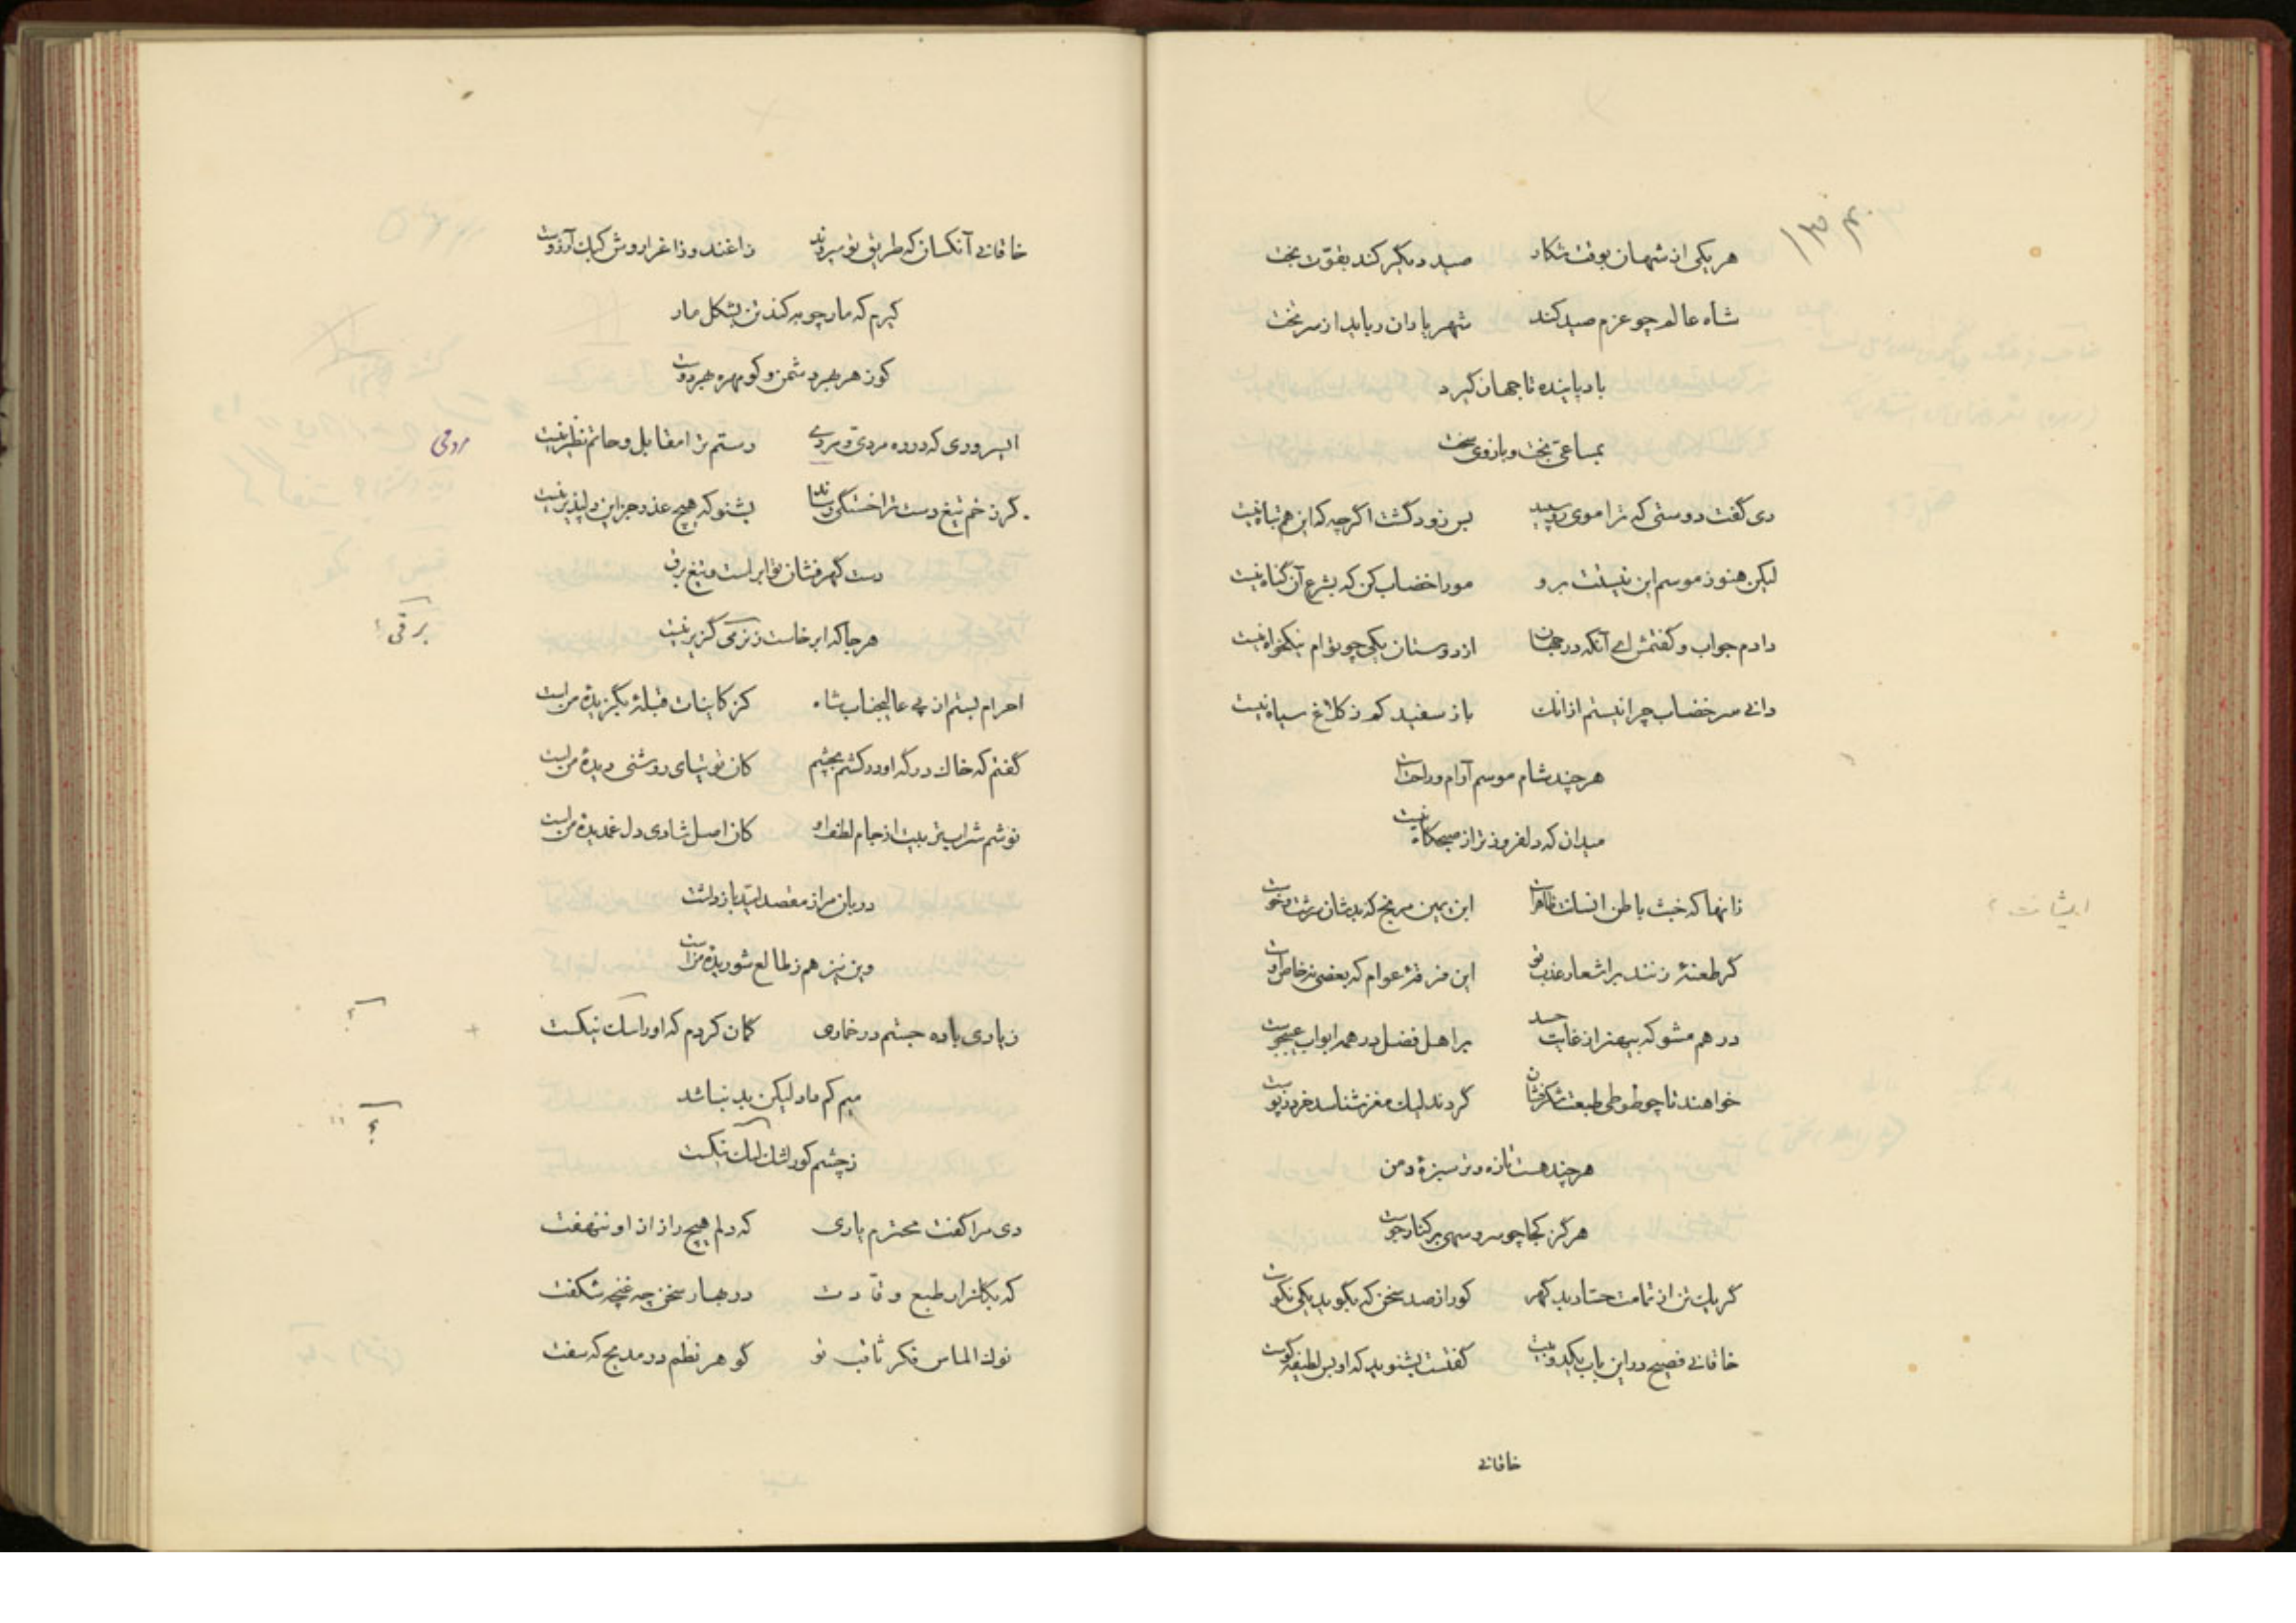 هر یکی از شهان بوقت شکار صید دیگر کند بقوّت بخت
شاه عالم چو عزم صید کند شهریاران رباید از سر تخت
باد پاینده تا جهان گیرد
بمساعیّ بخت و بازوی سخت
دی گفت دوستی که ترا موی رو سپید بس زود گشت اگرچه که این هم تباه نیست
لیکن هنوز موسم این نیستت برو مو را خضاب کن که بشرع آن گناه نیست
دادم جواب و گفتمش ای آنکه در جهان از دوستان یکی چو توام نیکخواه نیست
دانی سر خضاب چرا نیستم از آنک باز سفید کم ز کلاغ سیاه نیست
هرچند شام موسم آرام و راحت است
میدان که دلفروزتر از صبحگاه نیست
زانها که خبث باطن ایشان ظاهر است ابن یمین مرنج که بدشان سرشت و خوست
گر طعنهٔ زنند بر اشعار عذب تو این فرقهٔ عوام که بعضی نه خاص اوست
درهم مشو که بیهنر از غایت حسد بر اهل فضل در همه ابواب عیبجوست
خواهند تا چو طوطی طبعت شکرفشان گردند لیک مغز شناسد خرد ز پوست
هرچند هست تازه و تر سبزهٔ دمن
هرگز کجا چو سرو سهی بر کنار جوست
گر یک تن از تمامت حسّاد بد گهر کو را ز صد سخن که بگوید یکی نکوست
خاقانی فصیح در این باب یکدو بیت گفتست بشنوید که او بس لطیفه گوست
خاقانی
ایشانت ؟
خاقانی آنکسان که طریق تو میروند زاغند و زاغ را روش کبک آرزوست
گیرم که مارچوبه کند تن بشکل مار
کو زهر بهر دشمن و کو مهره بهر دوست
ای سروری که در ره مردیّ و مردمی رستم ترا مقابل و حاتم نظیر نیست
مردمی
گر زخم تیغ دست ترا خستگی رساند بشنو که هیچ عذر جز این دلپذیر نیست
دست گهرفشان تو ابر است و تیغ برق
هر جا که ابر خاست ز نرمی گزیر نیست
برقی ؟
احرام بستم از پی عالیجناب شاه کز کاینات قبلهٔ بگزیدهٔ من است
گفتم که خاک درگه او درکشم بچشم کان توتیای روشنی دیدهٔ من است
نوشم شراب تربیت از جام لطف او کان اصل شادی دل غمدیدهٔ من است
دربان مرا ز مقصد امید باز داشت
وین نیز هم ز طالع شوریدهٔ من است
ز یاری باده جستم در خماری گمان کردم که او را سک نیکست
میم کم داد لیکن بد نباشد
ز چشم کور اشک نیکست
دی مرا گفت محترم یاری که دلم هیچ راز ازو ننهفت
که بگلزار طبع وقّادت در بهار سخن چه غنچه شکفت
نوک الماس فکر ثاقب تو گوهر نظم در مدیح که سفت